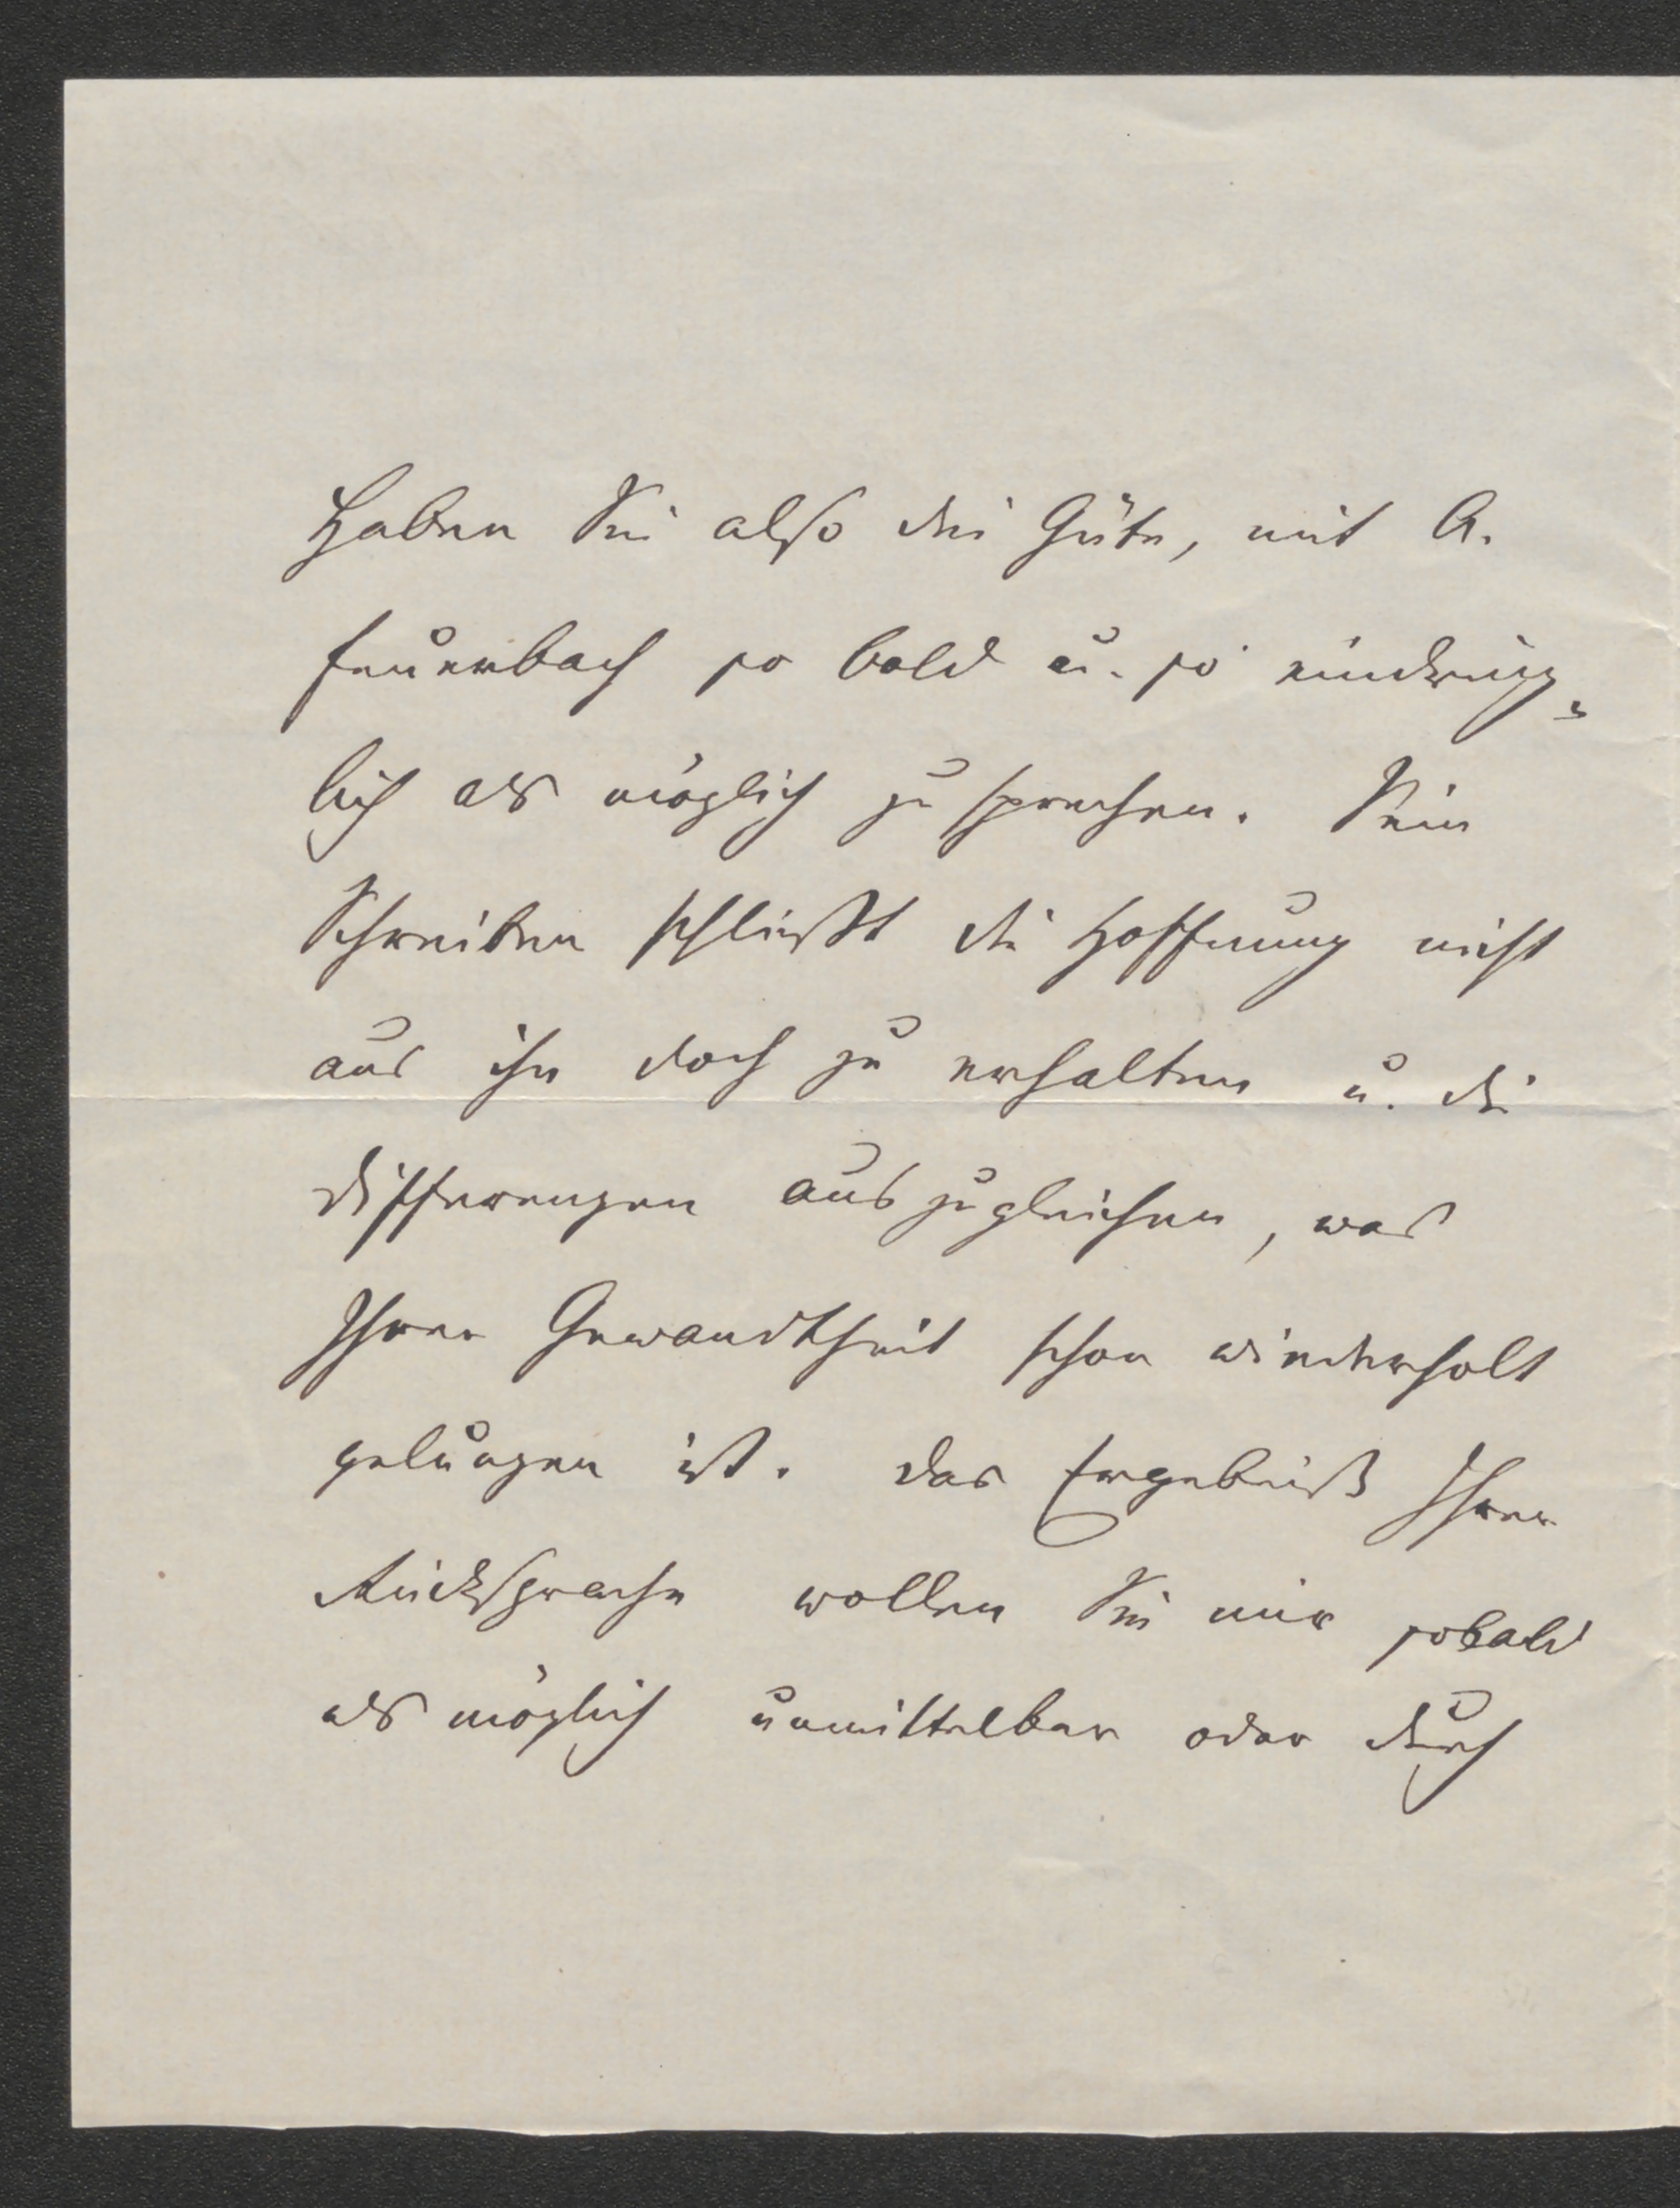 Haben Sie also die Güte, mit A.
Feuerbach so bald u. so eindring-
lich als möglich zu sprechen. Sein
Schreiben schließt die Hoffnung nicht
aus ihn doch zu erhalten u. die
Differenzen auszugleichen, was
Ihrer Gewandtheit schon wiederholt
gelungen ist. Das Ergebniß Ihrer
Rücksprache wollen Sie mir sobald
als möglich unmittelbar oder durch